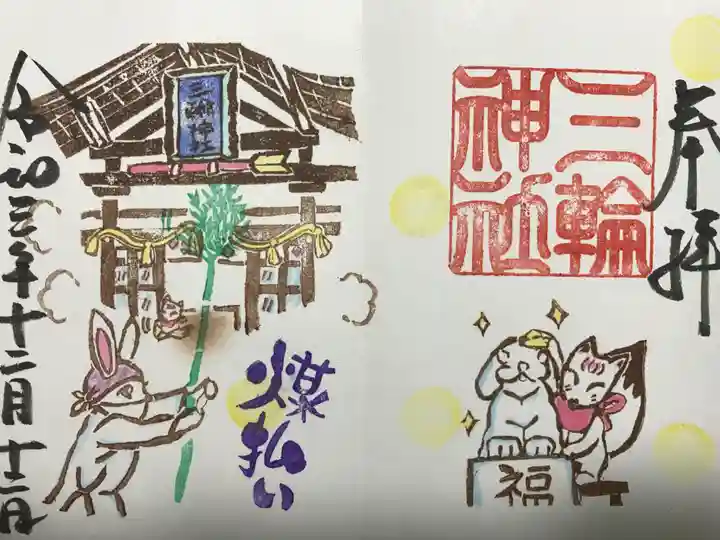 奉拝
三輪
神社
福
三輪神社
煤払い
令和三年十二月十二日